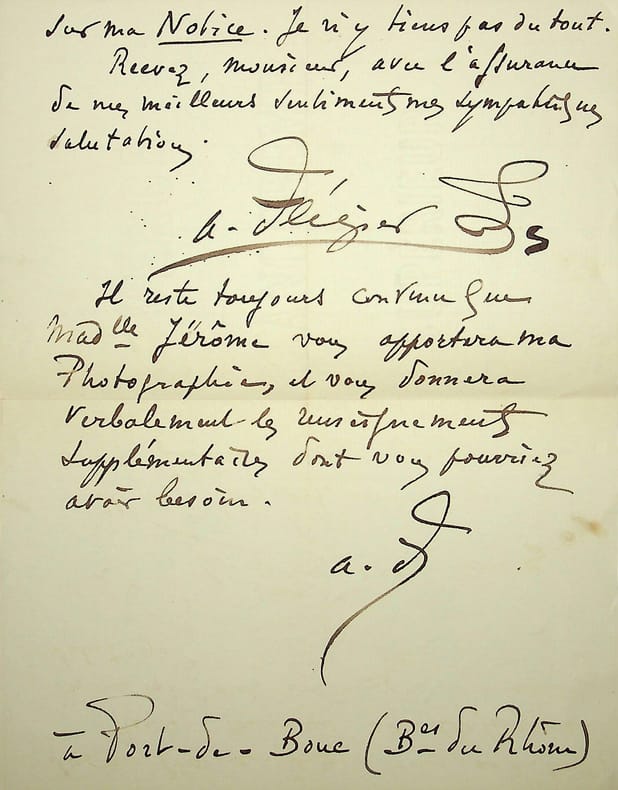 sur ma Notice. Je n'y tiens pas du tout.
Recevez, monsieur, avec l'assurance
de mes meilleurs sentiments mes sympathiques
salutations.
A. Flégier
Il reste toujours convenu que
Mad^lle Jérôme vous apportera ma
Photographie, et vous donnera
verbalement les renseignements
supplémentaires dont vous pourriez
avoir besoin.
A. F
à Port-de-Bouc (B^es du Rhône)